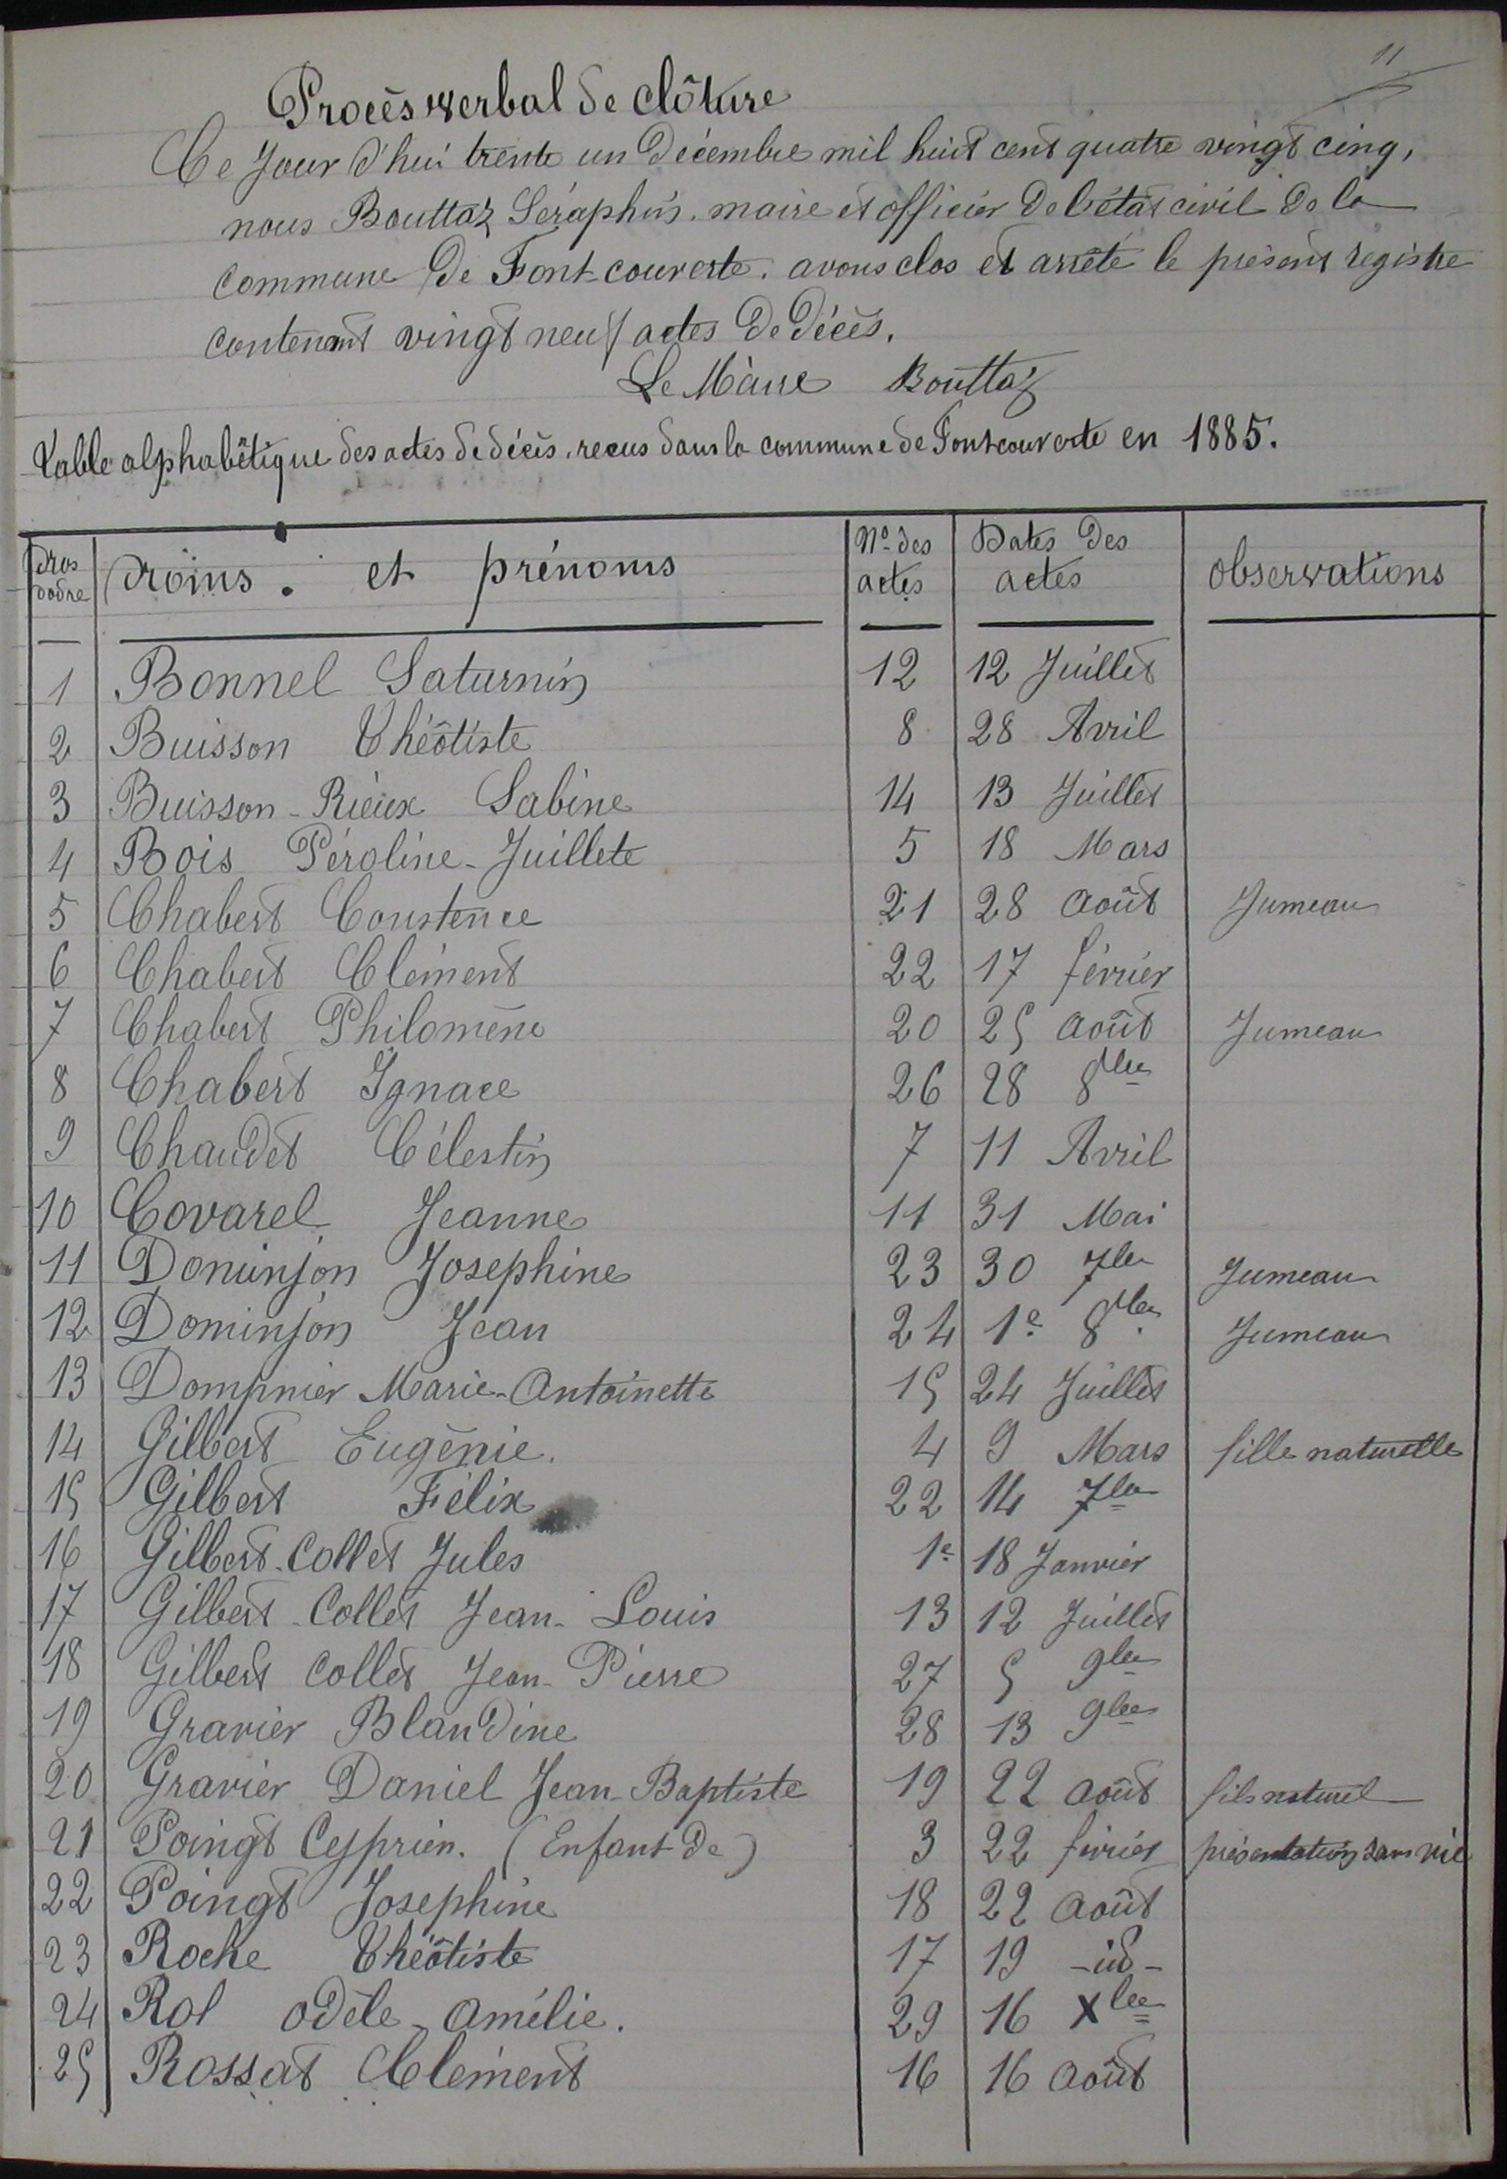 11
Procès verbal de clôture
Ce Jour d'hui trente un Décembre mil huit cent quatre vingt cinq,
nous Bouttaz Séraphin, maire et officier de l'état civil de la
commune de Font-couverte. avons clos et arrêté le présent registre
contenant vingt neuf actes de Décès.
Le Maire Bouttaz
Table alphabêtique des actes de décès, recus dans la commune de Fontcouverte en 1885.
Nros d'odre | Noms et prénoms | Nos des actes | Dates des actes | observations
1 Bonnel Saturnin 12 12 Juillet
2 Buisson Théôtiste 8 28 Avril
3 Buisson-Rieux Sabine 14 13 Juillet
4 Bois Péroline-Juillete 5 18 Mars
5 Chabert Constence 21 28 août Jumeau
6 Chabert Clément 22 17 février
7 Chabert Philomène 20 25 août Jumeau
8 Chabert Ignace 26 28 8bre
9 Chaudet Célestin 7 11 Avril
10 Covarel Jeanne 11 31 Mai
11 Dominjon Josephine 23 30 7bre Jumeau
12 Dominjon Jean 24 1e 8bre Jumeau
13 Dompnier Marie-Antoinette 15 24 Juillet
14 Gilbert Eugènie. 4 9 Mars fille naturelle
15 Gilbert Félix 22 14 7bre
16 Gilbert-Collet Jules 1e 18 Janvier
17 Gilbert-Collet Jean-Louis 13 12 Juillet
18 Gilbert Collet Jean-Pierre 27 5 9bre
19 Gravier Blandine 28 13 9bre
20 Gravier Daniel Jean-Baptiste 19 22 août fils naturel
21 Poingt Cyprien. (Enfant de) 3 22 février présentation sans vie
22 Poingt Josephine 18 22 août
23 Roche Théôtiste 17 19 -id-
24 Rol Odèle-Amélie. 29 16 Xbre
25 Rossat Clément 16 16 août